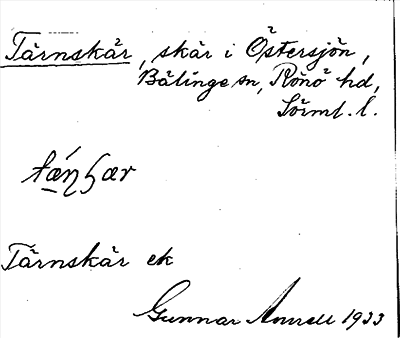 Tärnskär, skär i Östersjön,
Bälinge sn, Rönö hd,
Sörml. l.
Tärnskär ek
Gunnar Annell 1933